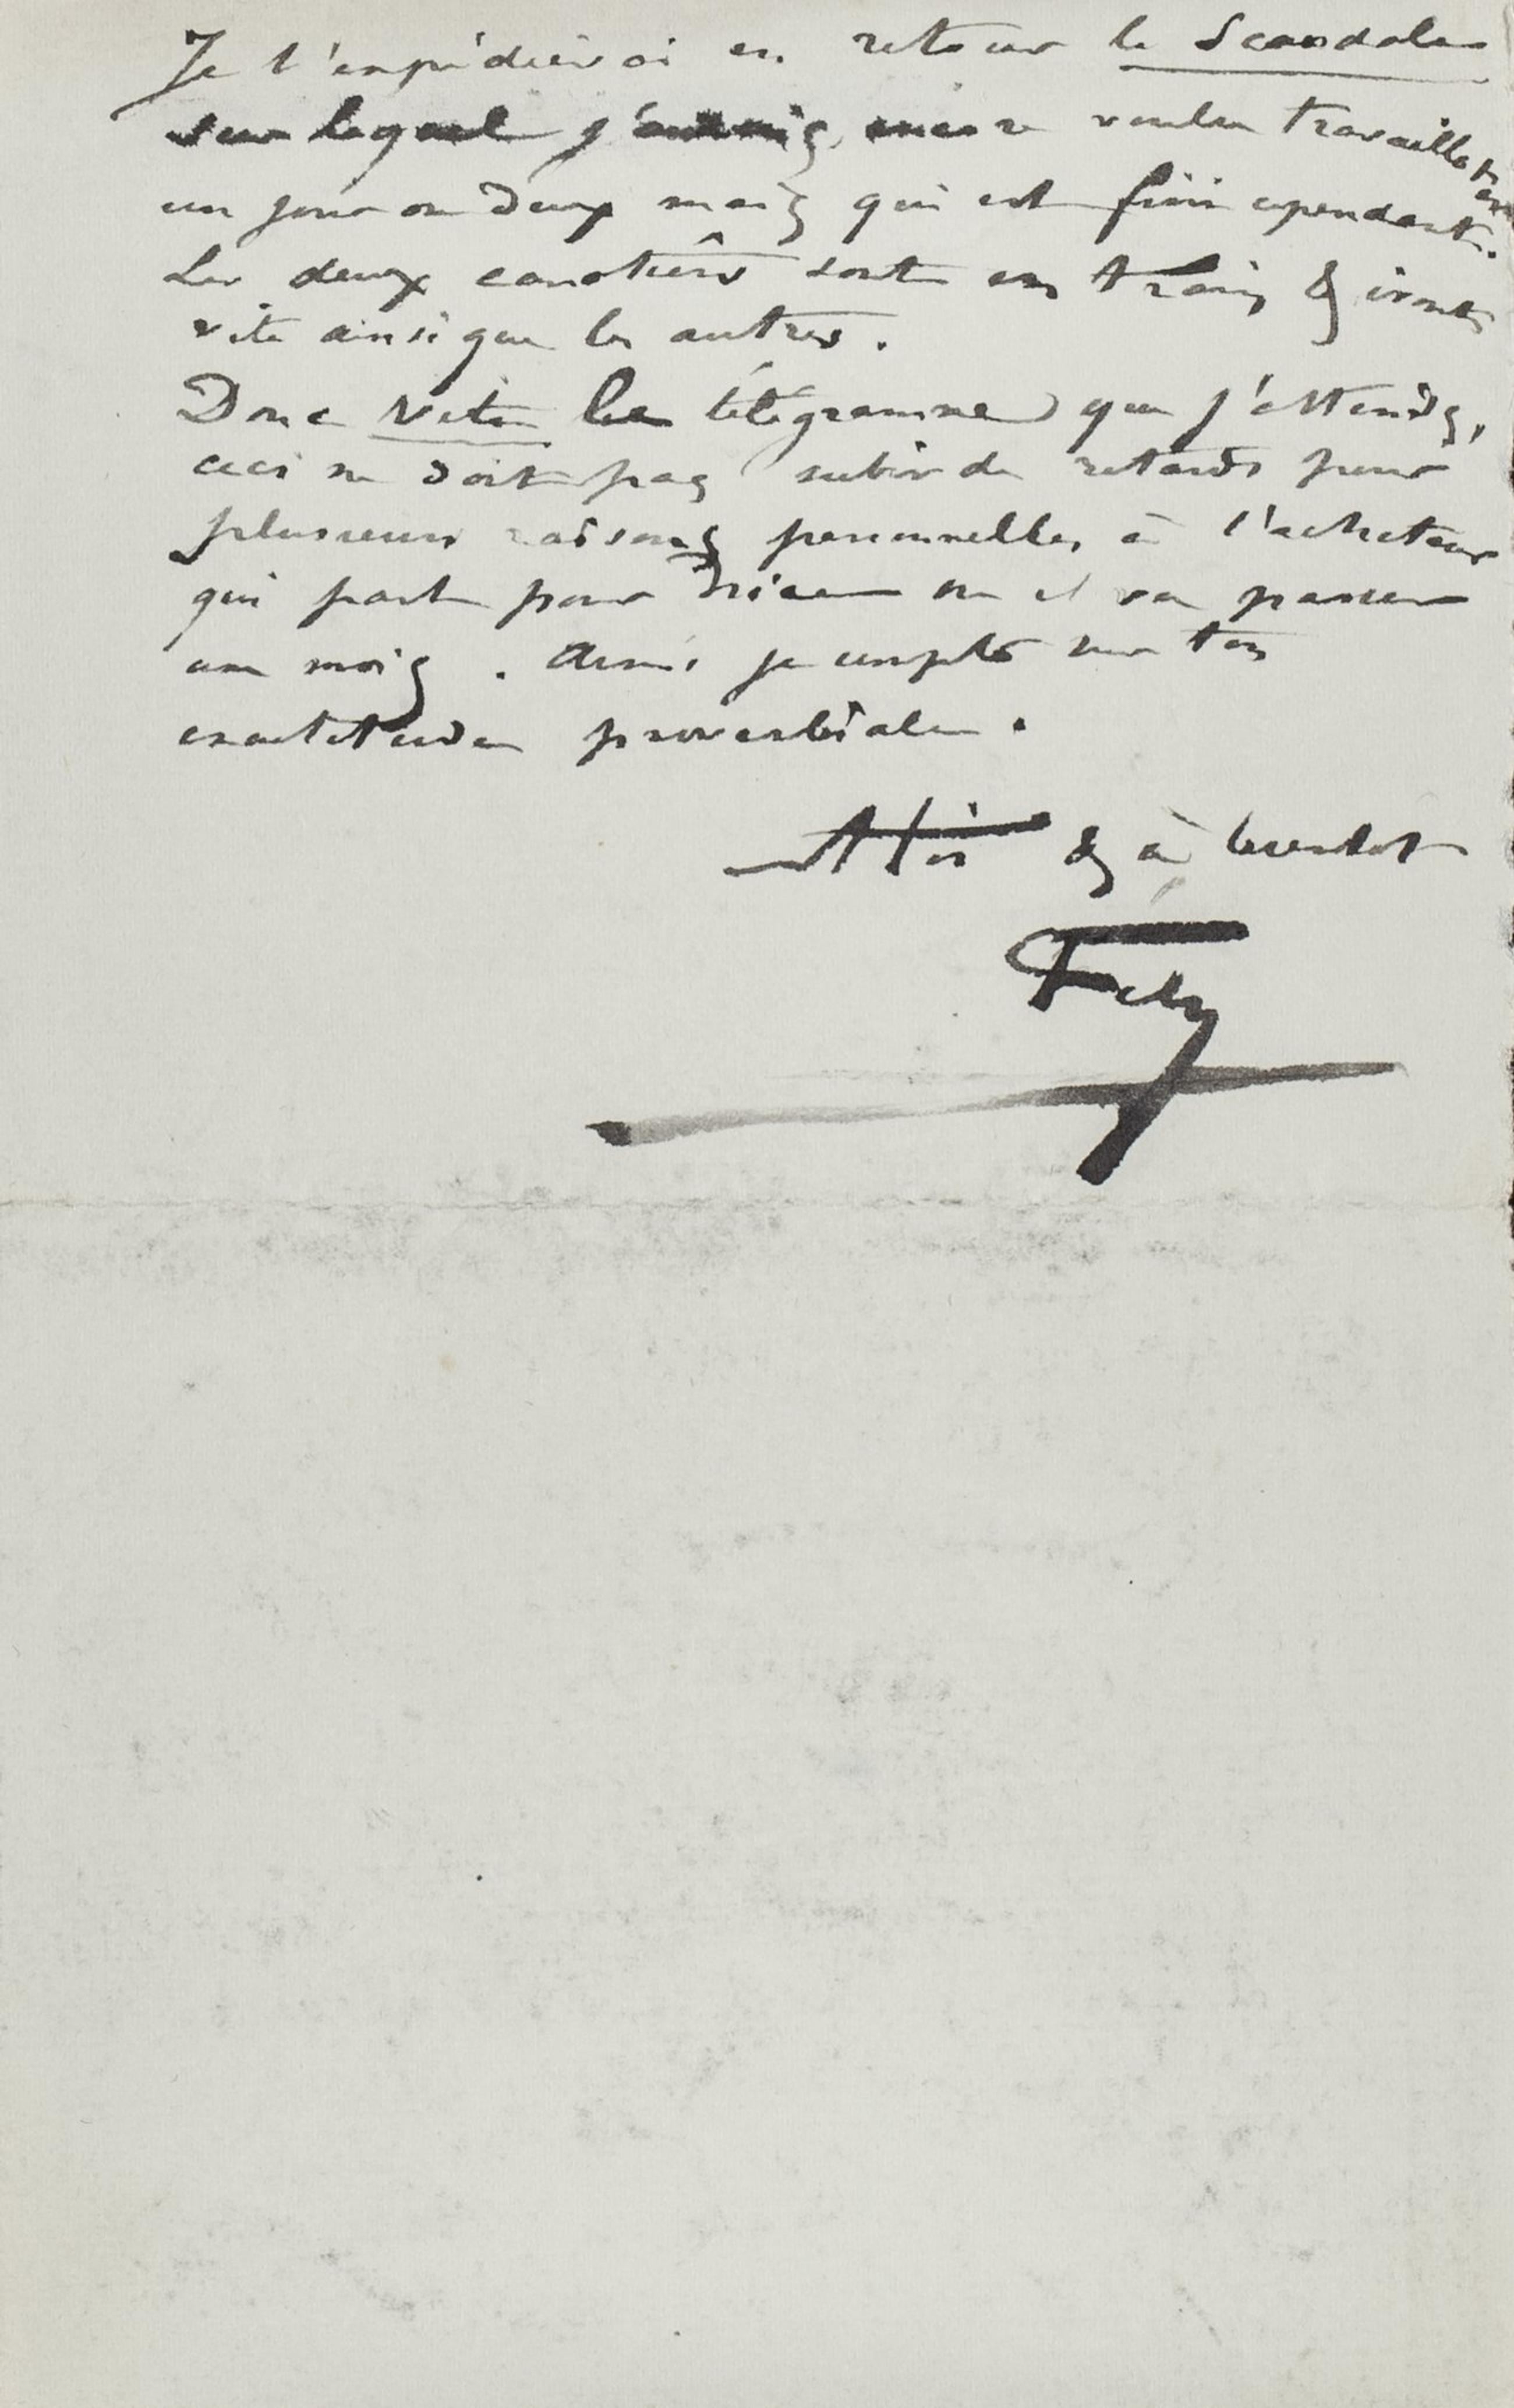 Je t'expédierai en retour le Scandale
sur lequel j'aurais encore voulu travailler
un jour ou deux mais qui est fini cependant.
Les deux canotiers sont en train & iront
vite ainsi que les autres.
Donc vite le télégramme que j'attends,
ceci ne doit pas subir de retards pour
plusieurs raisons personnelles à l'acheteur
qui part pour Nice ou il va passer
un mois. Ainsi je compte sur ton
exactitude proverbiale.
à Toi & à bientot
Fély